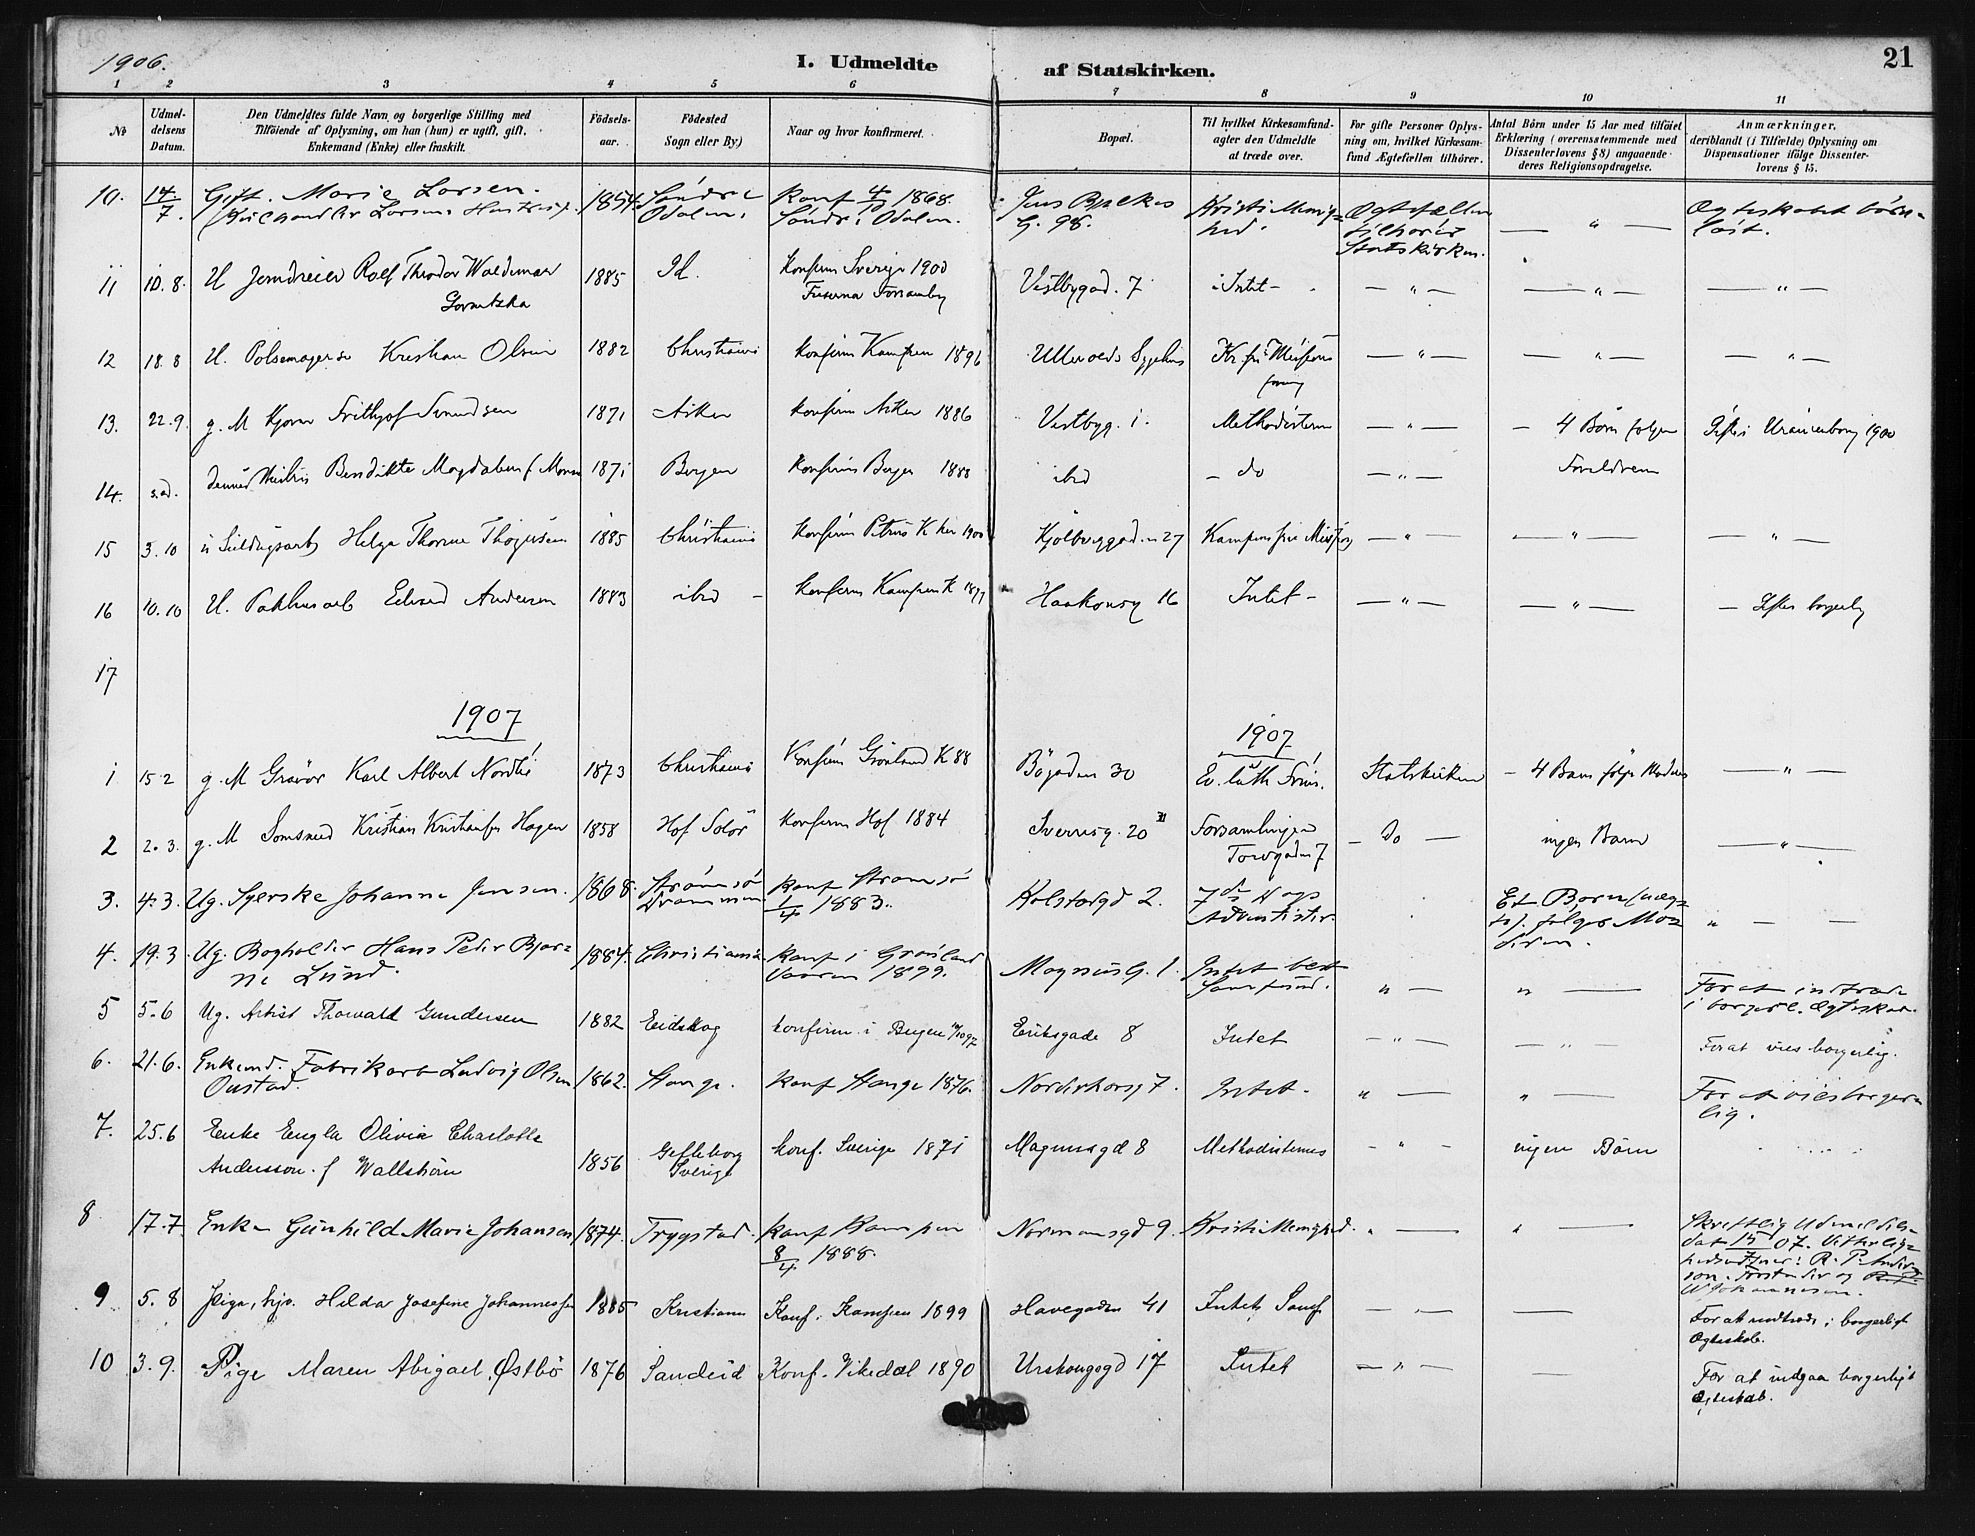 1906.
I. Udmeldte af Statskirken.
21
1 2 3 4 5 6 7 8 9 10 11
No
Udmeldelsens Datum.
Den Udmeldtes fulde Navn og borgerlige Stilling med
Tilföiende af Oplysning, om han (hun) er ugift, gift,
Enkemand (Enke) eller fraskilt.
Födselsaar.
Födested
Sogn eller By)
Naar og hvor konfirmeret.
Bopæl.
Til hvilket Kirkesamfund
agter den Udmeldte
at træde over.
For gifte Personer Oplysning om, hvilket Kirkesamfund Ægtefællen tilhører.
Antal Börn under 15 Aar med tilföiet
Erklæring (overensstemmende med
Dissenterlovens § 8) angaaende
deres Religionsopdragelse.
Anmærkninger,
deriblandt (i Tilfælde) Oplysning om
Dispensationer ifölge Dissenterlovens § 15.
10. 14/7. Gift. Marie Larsen. Larsens Hustru 1854. Söndre Odalen. Konf 4/10 1868. Söndre Odalen. Jens Bjelkes G. 98. Kristi Menighed. Ægtefællen tilhører Statskirken. — " — Ægteskabet barnlöst.
11 10.8. U Jerndreier Rolf Theodor Waldemar 1885 Id. Konfirm Sverige 1900 Vestbygad. 7 Intet — " — — " — — " —
12 18.8 U. Pølsemager Kristian Olsen 1882 Christiania konfirm Kampen 1896 Ullevolds Sygehus Kr fri Missions — " — — " — — " —
13. 22.9. g. M Frithjof Svendsen 1871 Asker konfirm Asker 1886 Vestbyg. 1. Methodisterne — " — 4 Börn følger Gift i Uranienborg 1900
14. s.d. dennes Hustru Bendikte Magdalene f. 1871 Bergen konfirm Bergen 1888 ibid — do — " — Foreldrene
15 3.10 Helga 1885 Christiania konfirm Petrus K Kjölberggaden 27 Kampens frie — " — — " — — " —
16 10.10 U. Pakhusarb Edvard Andersen 1883 ibid — konfirm Kampen K Haakonsg 16 Intet — — " — — " — — Gift borgerlig
17
1907 1907
1 15.2 g. M Karl Albert 1873 Christiania Konfirm Grönland K 88 Bögaden 30 Ev. luth Statskirken — 4 Barn følger Moderen — " —
2 2.3. g. M Kristian Kristiansen Hagen 1858 Hof Solör konfirm Hof 1884 Sverresg. 20 Forsamlingen Torvgaden 7 — do — ingen Barn — " —
3. 4.3. Ug. Syerske Johanne Jensen. 1868. Strömsö Drammen. konf Strömsö 1/4 1883. Holstsgd 2. 7de Dags Adventister Et Barn følger Moderen. " — —
4. 19.3. Ug. Bogholder Hans Peder Bjarne Lund. 1884. Christiania. konf i Grönland Vaaren 1899. Magnus G. 1. Intet best Samfund. " — " — For at indtræde i borgerl. Ægteskab.
5 5.6 Ug. Artist Thorvald Gundersen 1882 Eidskog konfirm. i Bergen Eriksgade 8 Intet — " — — " — For at vies borgerlig.
6. 21.6. Enkemd. Fabrikarb Ludvig Olsen 1862. Stange. konf Stange 1876. 7. Intet. " — " — For at vies borgerlig.
7. 25.6 Enke Engla Olivia Charlotte
Andersson. f Wallström 1856 Gefleborg Sverige konf. Sverige 1871 Magnusgd 8 Methodisternes — " — ingen Börn
8 17.7. Enke Gunhild Marie Johansen 1874. Trygstad. konf Kampen 8/4 1888. Normansgd 9. Kristi Menighed. " — " — Skriftlig Udmeldelse dat 15/7 07.
9 5.8 Pige, Hilda Josefine Johannessen 1885 Kristiania Konf. Kampen 1899 Havegaden 41 Intet Samf — " — — For at indtræde i borgerligt Ægteskab.
10 3.9. Pige Maren Abigael Østbö 1876 Sandeid Konf. Vikedal 1890 Urskougsgd 17 Intet — " — — For at indgaa borgerligt Ægteskab.